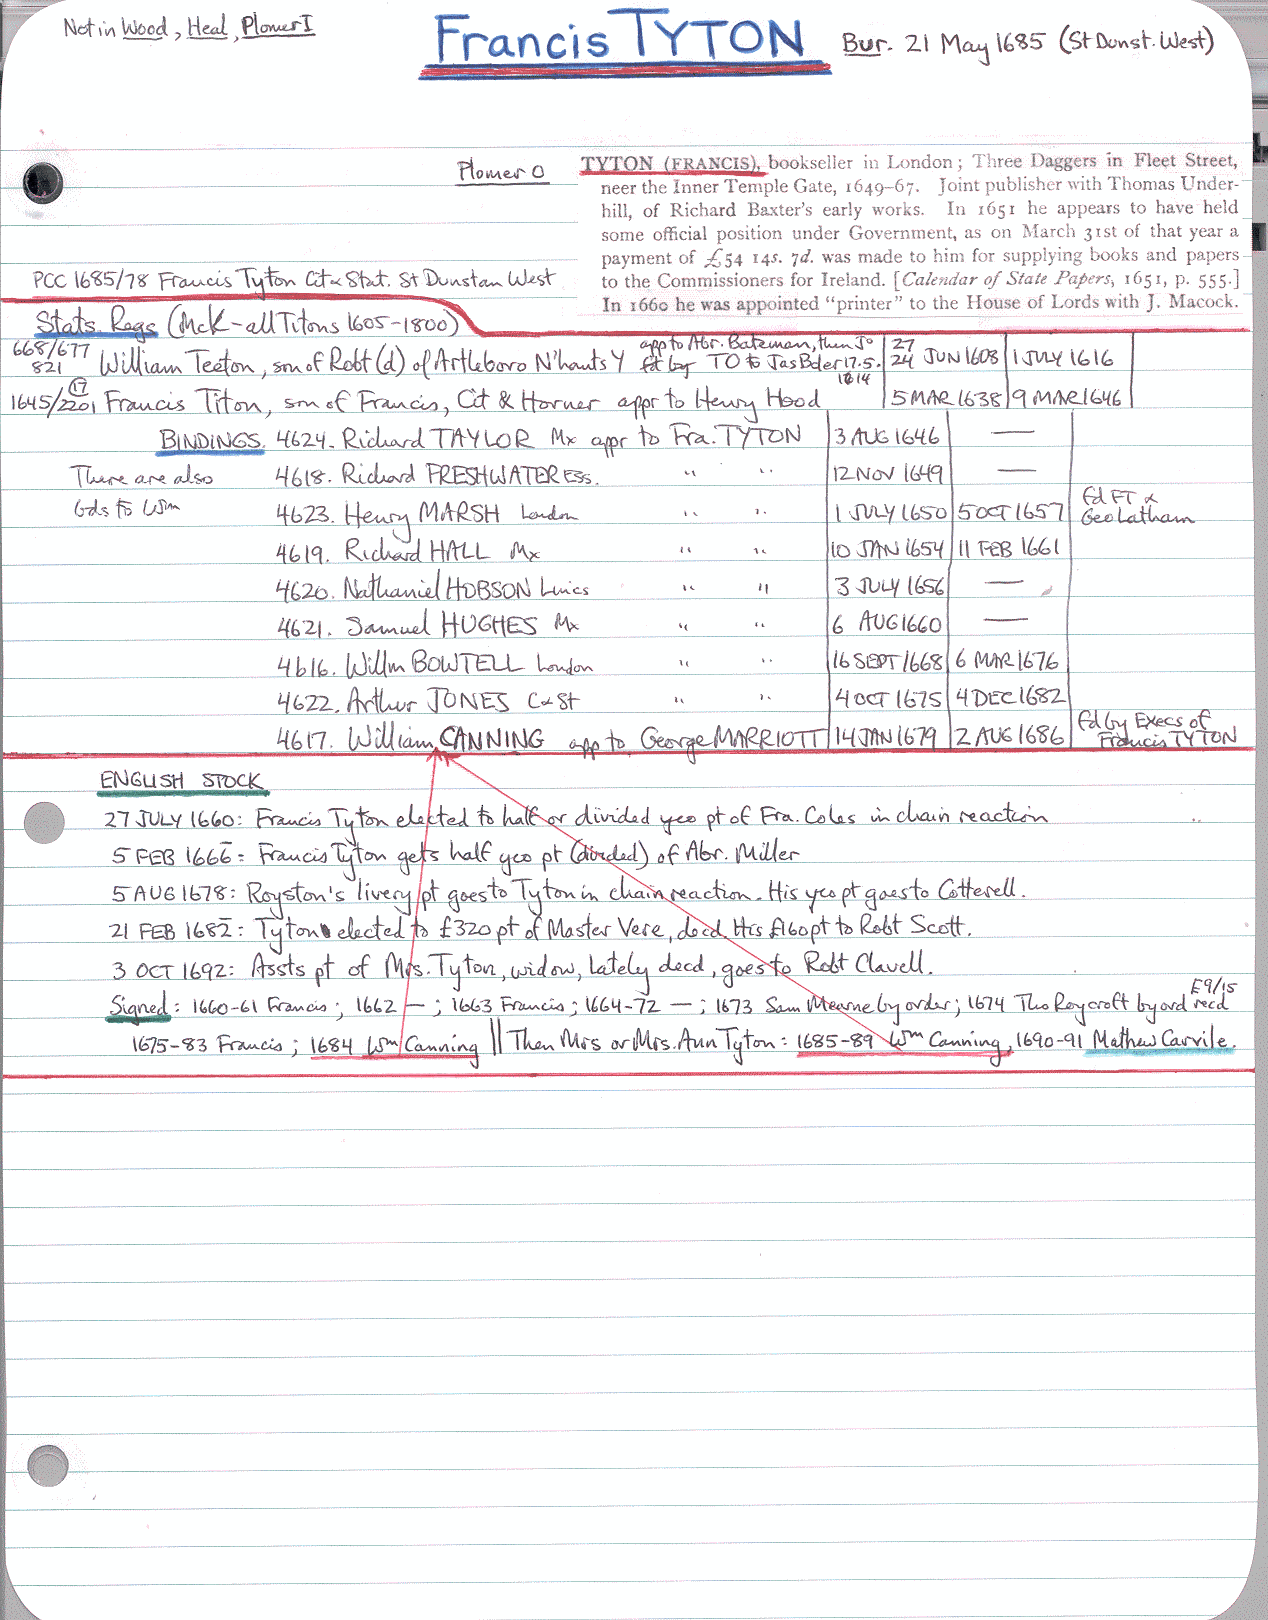 Not in Wood, Heal, Plomer I
Francis TYTON
Bur. 21 May 1685 (St Dunst. West)
Plomer O
TYTON (FRANCIS), bookseller in London; Three Daggers in Fleet Street,
neer the Inner Temple Gate, 1649–67. Joint publisher with Thomas Under-
hill, of Richard Baxter's early works. In 1651 he appears to have held
some official position under Government, as on March 31st of that year a
payment of £54 14s. 7d. was made to him for supplying books and papers
to the Commissioners for Ireland. [Calendar of State Papers, 1651, p. 555.]
In 1660 he was appointed "printer" to the House of Lords with J. Macock.
PCC 1685/78 Francis Tyton Cit & Stat. St Dunstan West
Stats. Regs (McK–all Titons 1605–1800)
668/677 821 William Teeton, son of Robt (d) of Artleboro N'hants Y app to Abr. Bateman, then Jo fd by TO to Jas Boler 17.5.1614 27 24 JUN 1608 1 JULY 1616
1645/2201 (17) Francis Titon, son of Francis, Cit & Horner appr to Henry Hood 5 MAR 1638 9 MAR 1646
BINDINGS. 4624. Richard TAYLOR Mx appr to Fra. TYTON 3 AUG 1646 —
There are also 4618. Richard FRESHWATER Ess. " " 12 NOV 1649 —
bds to Wm 4623. Henry MARSH London " " 1 JULY 1650 5 OCT 1657 fd FT & Geo Latham
4619. Richard HALL Mx " " 10 JAN 1654 11 FEB 1661
4620. Nathaniel HOBSON Lincs " " 3 JULY 1656 —
4621. Samuel HUGHES Mx " " 6 AUG 1660 —
4616. Willm BOWTELL London " " 16 SEPT 1668 6 MAR 1676
4622. Arthur JONES C & St " " 4 OCT 1675 4 DEC 1682
4617. William CANNING app to George MARRIOTT 14 JAN 1679 2 AUG 1686 fd by Execs of Francis TYTON
ENGLISH STOCK
27 JULY 1660: Francis Tyton elected to half or divided yeo pt of Fra. Coles in chain reaction
5 FEB 1666: Francis Tyton gets half yeo pt (divided) of Abr. Miller
5 AUG 1678: Royston's livery pt goes to Tyton in chain reaction. His yeo pt goes to Cotterell.
21 FEB 1682: Tyton elected to £320 pt of Master Vere, decd. His £160 pt to Robt Scott.
3 OCT 1692: Assts pt of Mrs. Tyton, widow, lately decd, goes to Robt Clavell.
Signed: 1660–61 Francis; 1662 —; 1663 Francis; 1664–72 —; 1673 Sam Mearne by order; 1674 Tho Roycroft by ord recd E9/15
1675–83 Francis; 1684 Wm Canning || Then Mrs or Mrs. Ann Tyton: 1685–89 Wm Canning, 1690–91 Mathew Carvile.